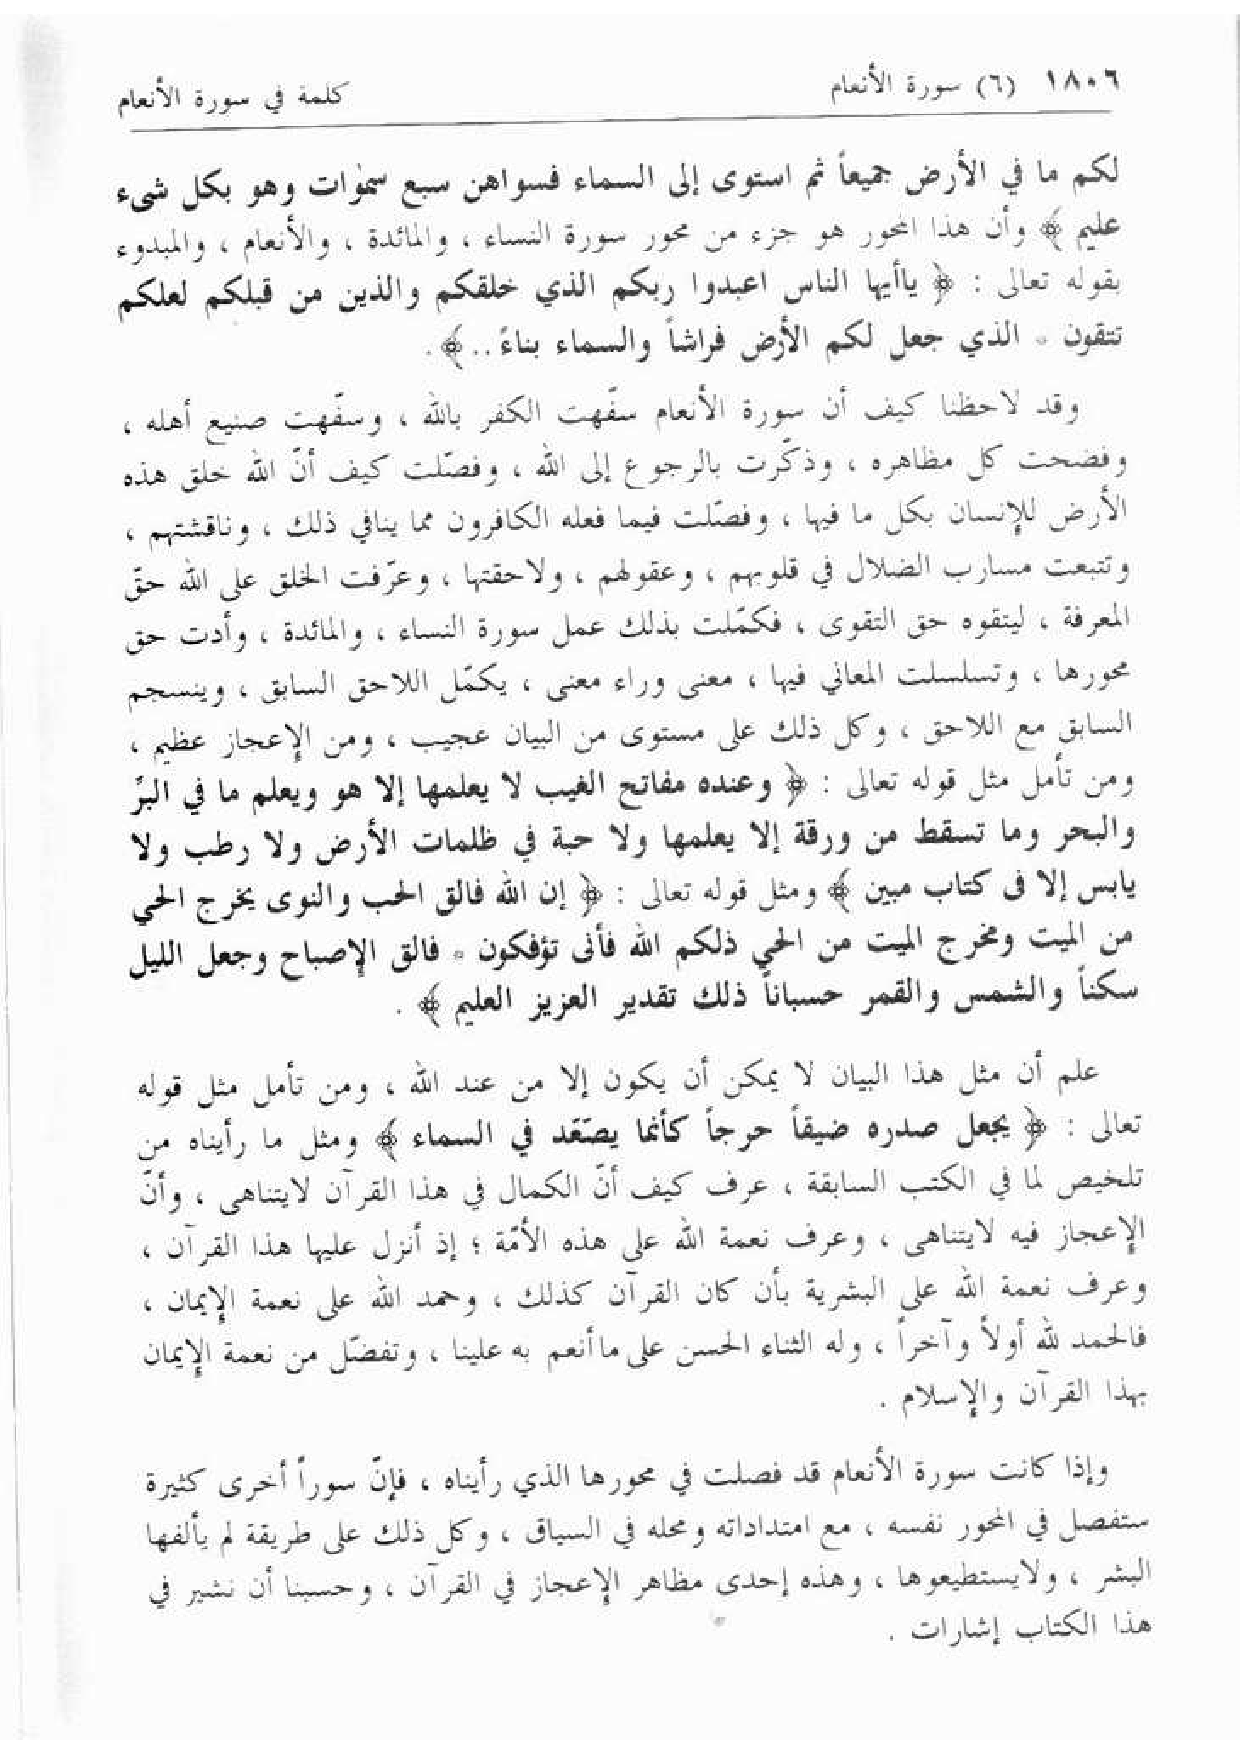 ١٨٠٦ (٦) سورة الأنعام كلمة في سورة الأنعام
لكم ما في الأرض جميعاً ثم استوى إلى السماء فسواهن سبع سمٰوات وهو بكل شىء
عليم ﴾ وأن هذا المحور هو جزء من محور سورة النساء ، والمائدة ، والأنعام ، والمبدوء
بقوله تعالى : ﴿ ياأيها الناس اعبدوا ربكم الذي خلقكم والذين من قبلكم لعلكم
تتقون * الذي جعل لكم الأرض فراشاً والسماء بناءً .. ﴾ .
وقد لاحظنا كيف أن سورة الأنعام سفّهت الكفر بالله ، وسفّهت صنيع أهله ،
وفضحت كل مظاهره ، وذكّرت بالرجوع إلى الله ، وفصّلت كيف أنّ الله خلق هذه
الأرض للإنسان بكل ما فيها ، وفصّلت فيما فعله الكافرون مما ينافي ذلك ، وناقشتهم ،
وتتبعت مسارب الضلال في قلوبهم ، وعقولهم ، ولاحقتها ، وعرّفت الخلق على الله حقّ
المعرفة ، ليتقوه حق التقوى ، فكمّلت بذلك عمل سورة النساء ، والمائدة ، وأدت حق
محورها ، وتسلسلت المعاني فيها ، معنى وراء معنى ، يكمّل اللاحق السابق ، وينسجم
السابق مع اللاحق ، وكل ذلك على مستوى من البيان عجيب ، ومن الإعجاز عظيم ،
ومن تأمل مثل قوله تعالى : ﴿ وعنده مفاتح الغيب لا يعلمها إلا هو ويعلم ما في البرِّ
والبحر وما تسقط من ورقة إلا يعلمها ولا حبة في ظلمات الأرض ولا رطب ولا
يابس إلا فى كتاب مبين ﴾ ومثل قوله تعالى : ﴿ إن الله فالق الحب والنوى يخرج الحي
من الميت ومخرج الميت من الحي ذلكم الله فأنى تؤفكون * فالق الإصباح وجعل الليل
سكناً والشمس والقمر حسباناً ذلك تقدير العزيز العليم ﴾ .
علم أن مثل هذا البيان لا يمكن أن يكون إلا من عند الله ، ومن تأمل مثل قوله
تعالى : ﴿ يجعل صدره ضيقاً حرجاً كأنما يصّعّد في السماء ﴾ ومثل ما رأيناه من
تلخيص لما في الكتب السابقة ، عرف كيف أنّ الكمال في هذا القرآن لايتناهى ، وأنّ
الإعجاز فيه لايتناهى ، وعرف نعمة الله على هذه الأمّة ؛ إذ أنزل عليها هذا القرآن ،
وعرف نعمة الله على البشرية بأن كان القرآن كذلك ، وحمد الله على نعمة الإيمان ،
فالحمد لله أولاً وآخراً ، وله الثناء الحسن على ماأنعم به علينا ، وتفضّل من نعمة الإيمان
بهذا القرآن والإسلام .
وإذا كانت سورة الأنعام قد فصلت في محورها الذي رأيناه ، فإنّ سوراً أخرى كثيرة
ستفصل في المحور نفسه ، مع امتداداته ومحله في السياق ، وكل ذلك على طريقة لم يألفها
البشر ، ولايستطيعوها ، وهذه إحدى مظاهر الإعجاز في القرآن ، وحسبنا أن نشير في
هذا الكتاب إشارات .